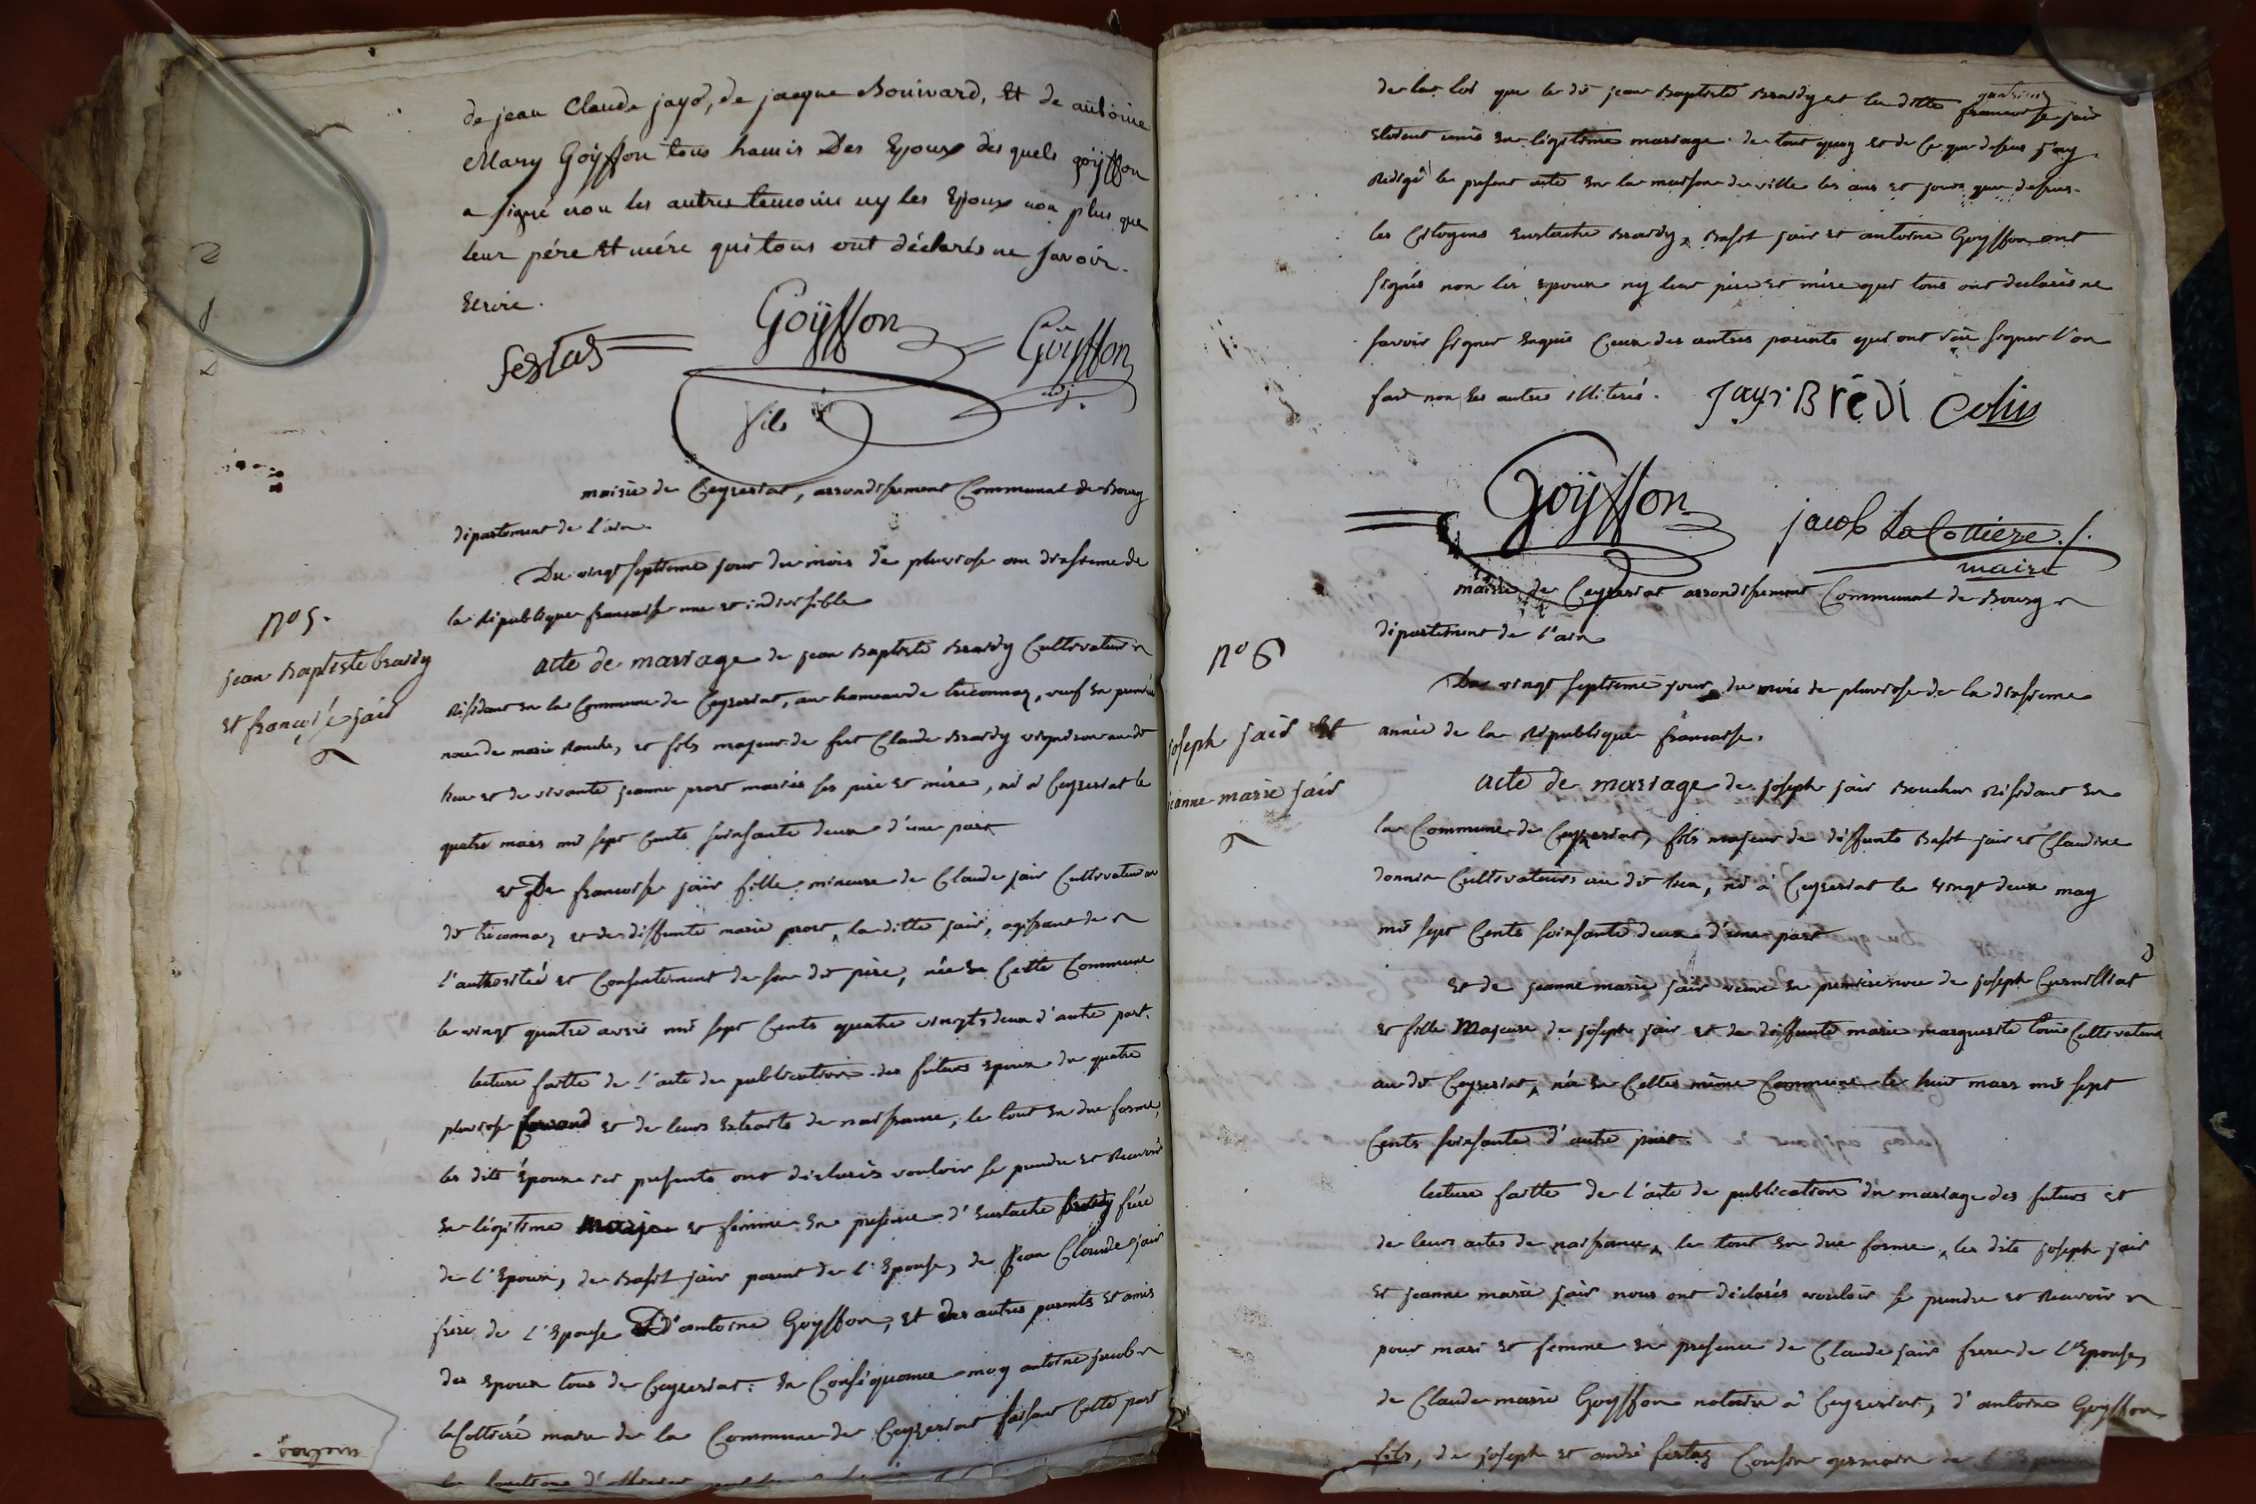 de jean Claude jayr, de jacque Bouivard, Et de antoine
Mary Goÿffon tous hamis Des Epoux des quels goÿffon
a signé non les autres temoins ny les Epoux non plus que
leur pére Et mére qui tous ont déclarés ne savoir
Ecrire.
Goÿffon
Goÿffon
fils
adj.
mairie de Ceyzeriat, arrondissement Communal de Bourg
département de l'ain
Du vingt septieme jour du mois de pluviose an dixsieme de
la République francaise une et indivisible
n° 5.
jean Baptiste brardy
et françoise jair
acte de mariage de jean Baptiste Brardy Cultivateur
Résidant en la Commune de Ceyzeriat, au hameau de tréconnaz, veuf en premier
noce de marie , et fils majeur de feu Claude Brardy vigneron au dt
lieu et de vivante jeanne prost mariés ses pére et mére, né à Ceyzeriat le
quatre mars mil sept Cents soixsante deux d'une part
et De francoise jair fille mineure de Claude jair Cultivateur au
dt tréconnaz et de deffunte marie prost, la ditte jair, agissant de
l'authorité et Consentement de son dt père, née en Cette Commune
le vingt quatre avril mil sept Cents quatre vingts deux d'autre part.
lecture faitte de l'acte de publication des futurs epoux du quatre
pluviose et de leurs extraits de naissance, le tout en due forme,
les dits époux ici presents ont déclarés vouloir se prendre et Recevoir
en légitime et femme en presence d'Eustache brardy frére
de l'Epoux, de Basil jair parent de l'Epouse, de jean Claude jair
frére de l'Epouse D'antoine Goyffon, et des autres parents et amis
des epoux tous de Ceyzeriat: En Conséquence moy antoine jacob
laCottiére maire de la Commune de Ceyzeriat faisant Cette part
les fonctions d'officier
de la loi que le dt jean Baptiste Brardy et la ditte francoise jair
Etoient unis en légitime mariage. de tout quoy et de Ce que dessus j'ay
Rédigé le present acte en la maison de ville les ans et jours que dessus.
les Citoyens Eustache Brardy, Basil jair et antoine Goyffon ont
signés non les epoux ny leur pére et mére qui tous ont declarés ne
savoir signer Enquis Ceux des autres parents qui ont sçu signer l'on
fait non les autres illiterés. Jayr Brédi Colin
Goÿffon
jacob La Cottiere./.
maire
mairie de Ceyzeriat arrondissement Communal de Bourg
département de l'ain
n° 6
joseph jair Et
jeanne marie jair
Du vingt septieme jour du mois de pluviose de la dixsieme
année de la République francaise.
acte de mariage de joseph jair Boucher Résidant en
la Commune de Ceyzeriat, fils majeur de deffunts Basil jair et Claudine
donnin Cultivateurs au dt lieu, né à Ceyzeriat le vingt deux may
mil sept Cents soixsante deux d'une part
et de jeanne marie jair veuve en premiere noce de joseph Curnilliat
et fille Majeure de joseph jair et de deffunte marie marguerite Cultivateur
au dt Ceyzeriat, née en Cette même Commune le huit mars mil sept
Cents soixsante d'autre part
lecture faitte de l'acte de publication du mariage des futurs et
de leurs actes de naissance, le tout en due forme, les dits joseph jair
et jeanne marie jair nous ont déclarés vouloir se prendre et Recevoir
pour mari et femme en presence de Claude jair frere de l'Epouse,
de Claude marie Goyffon notaire à Ceyzeriat, d'antoine Goyffon
fils, de joseph et andré Cousin germain de